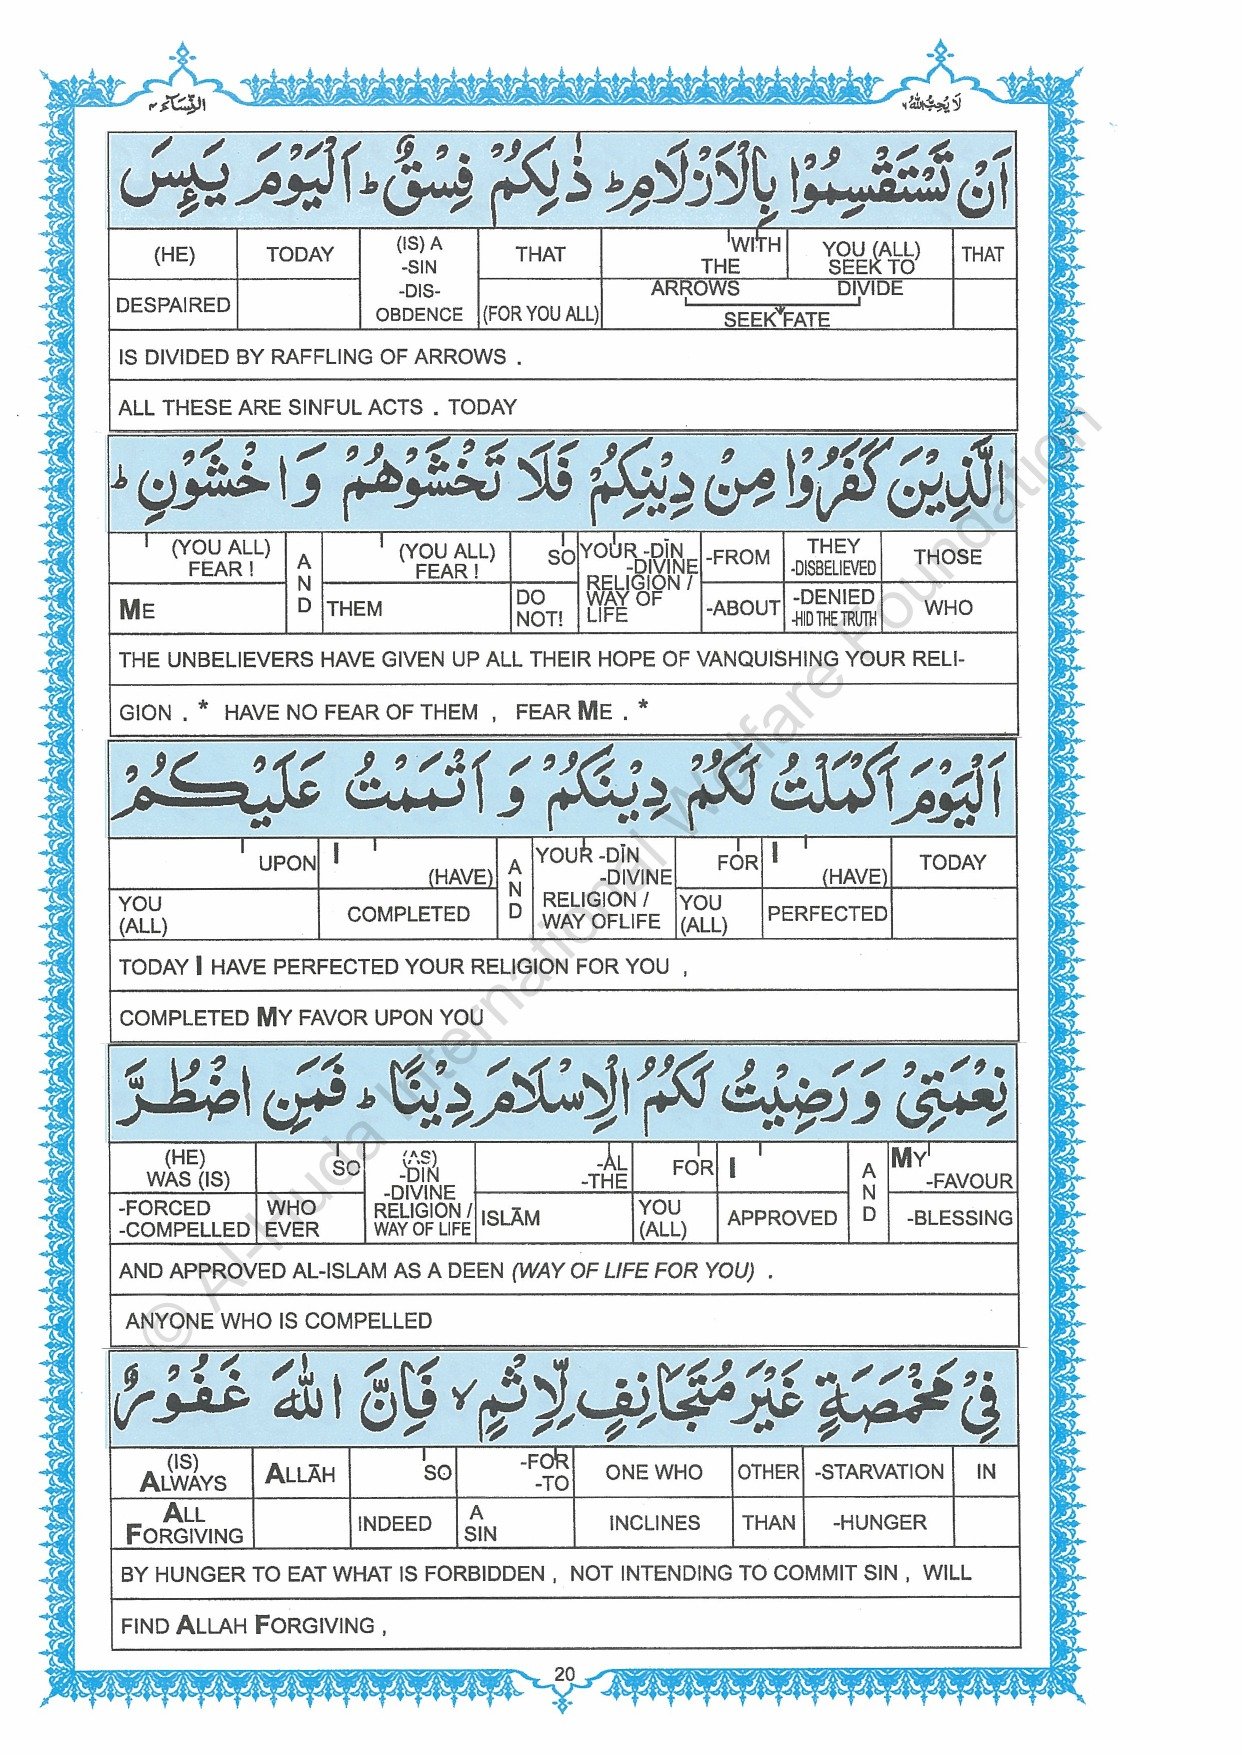 النِّسَآء ٤
لَا يُحِبُّ اللّٰهُ ٦
اَنْ تَسْتَقْسِمُوْا بِالْاَزْلَامِ ؕ ذٰلِكُمْ فِسْقٌ ؕ اَلْيَوْمَ يَىِٕسَ
(HE) TODAY (IS) A -SIN THAT WITH THE YOU (ALL) SEEK TO THAT
DESPAIRED -DIS-OBDENCE (FOR YOU ALL) ARROWS DIVIDE
SEEK FATE
IS DIVIDED BY RAFFLING OF ARROWS .
ALL THESE ARE SINFUL ACTS . TODAY
الَّذِيْنَ كَفَرُوْا مِنْ دِيْنِكُمْ فَلَا تَخْشَوْهُمْ وَ اخْشَوْنِ ؕ
(YOU ALL) FEAR ! AND (YOU ALL) FEAR ! SO YOUR -DĪN -DIVINE -FROM THEY -DISBELIEVED THOSE
ME THEM DO NOT! RELIGION / WAY OF LIFE -ABOUT -DENIED -HID THE TRUTH WHO
THE UNBELIEVERS HAVE GIVEN UP ALL THEIR HOPE OF VANQUISHING YOUR RELI-
GION . * HAVE NO FEAR OF THEM , FEAR ME . *
اَلْيَوْمَ اَكْمَلْتُ لَكُمْ دِيْنَكُمْ وَ اَتْمَمْتُ عَلَيْكُمْ
UPON I (HAVE) AND YOUR -DĪN -DIVINE FOR I (HAVE) TODAY
YOU (ALL) COMPLETED RELIGION / WAY OFLIFE YOU (ALL) PERFECTED
TODAY I HAVE PERFECTED YOUR RELIGION FOR YOU ,
COMPLETED MY FAVOR UPON YOU
نِعْمَتِيْ وَ رَضِيْتُ لَكُمُ الْاِسْلَامَ دِيْنًا ؕ فَمَنِ اضْطُرَّ
(HE) WAS (IS) SO (AS) -DĪN -DIVINE -AL -THE FOR I AND MY -FAVOUR
-FORCED -COMPELLED WHO EVER RELIGION / WAY OF LIFE ISLĀM YOU (ALL) APPROVED -BLESSING
AND APPROVED AL-ISLAM AS A DEEN (WAY OF LIFE FOR YOU) .
ANYONE WHO IS COMPELLED
فِيْ مَخْمَصَةٍ غَيْرَ مُتَجَانِفٍ لِّاِثْمٍ ۙ فَاِنَّ اللّٰهَ غَفُوْرٌ
(IS) ALWAYS ALLĀH SO -FOR -TO ONE WHO OTHER -STARVATION IN
ALL FORGIVING INDEED A SIN INCLINES THAN -HUNGER
BY HUNGER TO EAT WHAT IS FORBIDDEN , NOT INTENDING TO COMMIT SIN , WILL
FIND ALLAH FORGIVING ,
20
© Al-Huda International Welfare Foundation